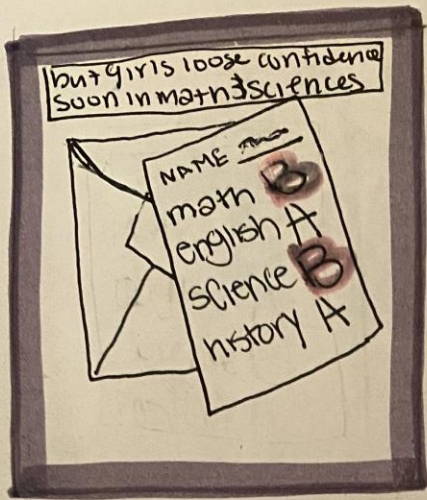 but girls loose confidence
soon in math & sciences
NAME
math B
english A
science B
history A